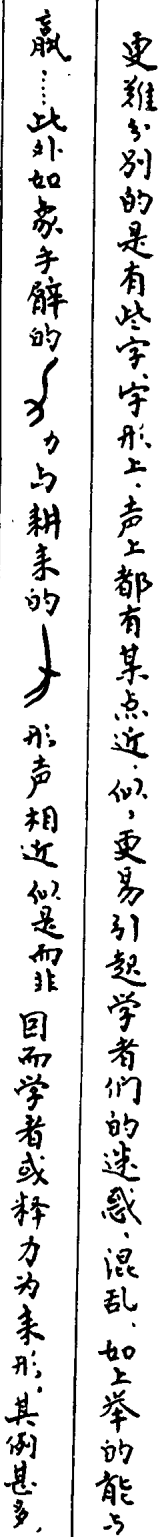 更难分别的是有些字、字形上、声上都有某点近似，更易引起学者们的迷惑、混乱、如上举的能与
嬴……此外如象手臂的力与耕耒的形声相近似是而非 因而学者或释力为耒形。其例甚多，